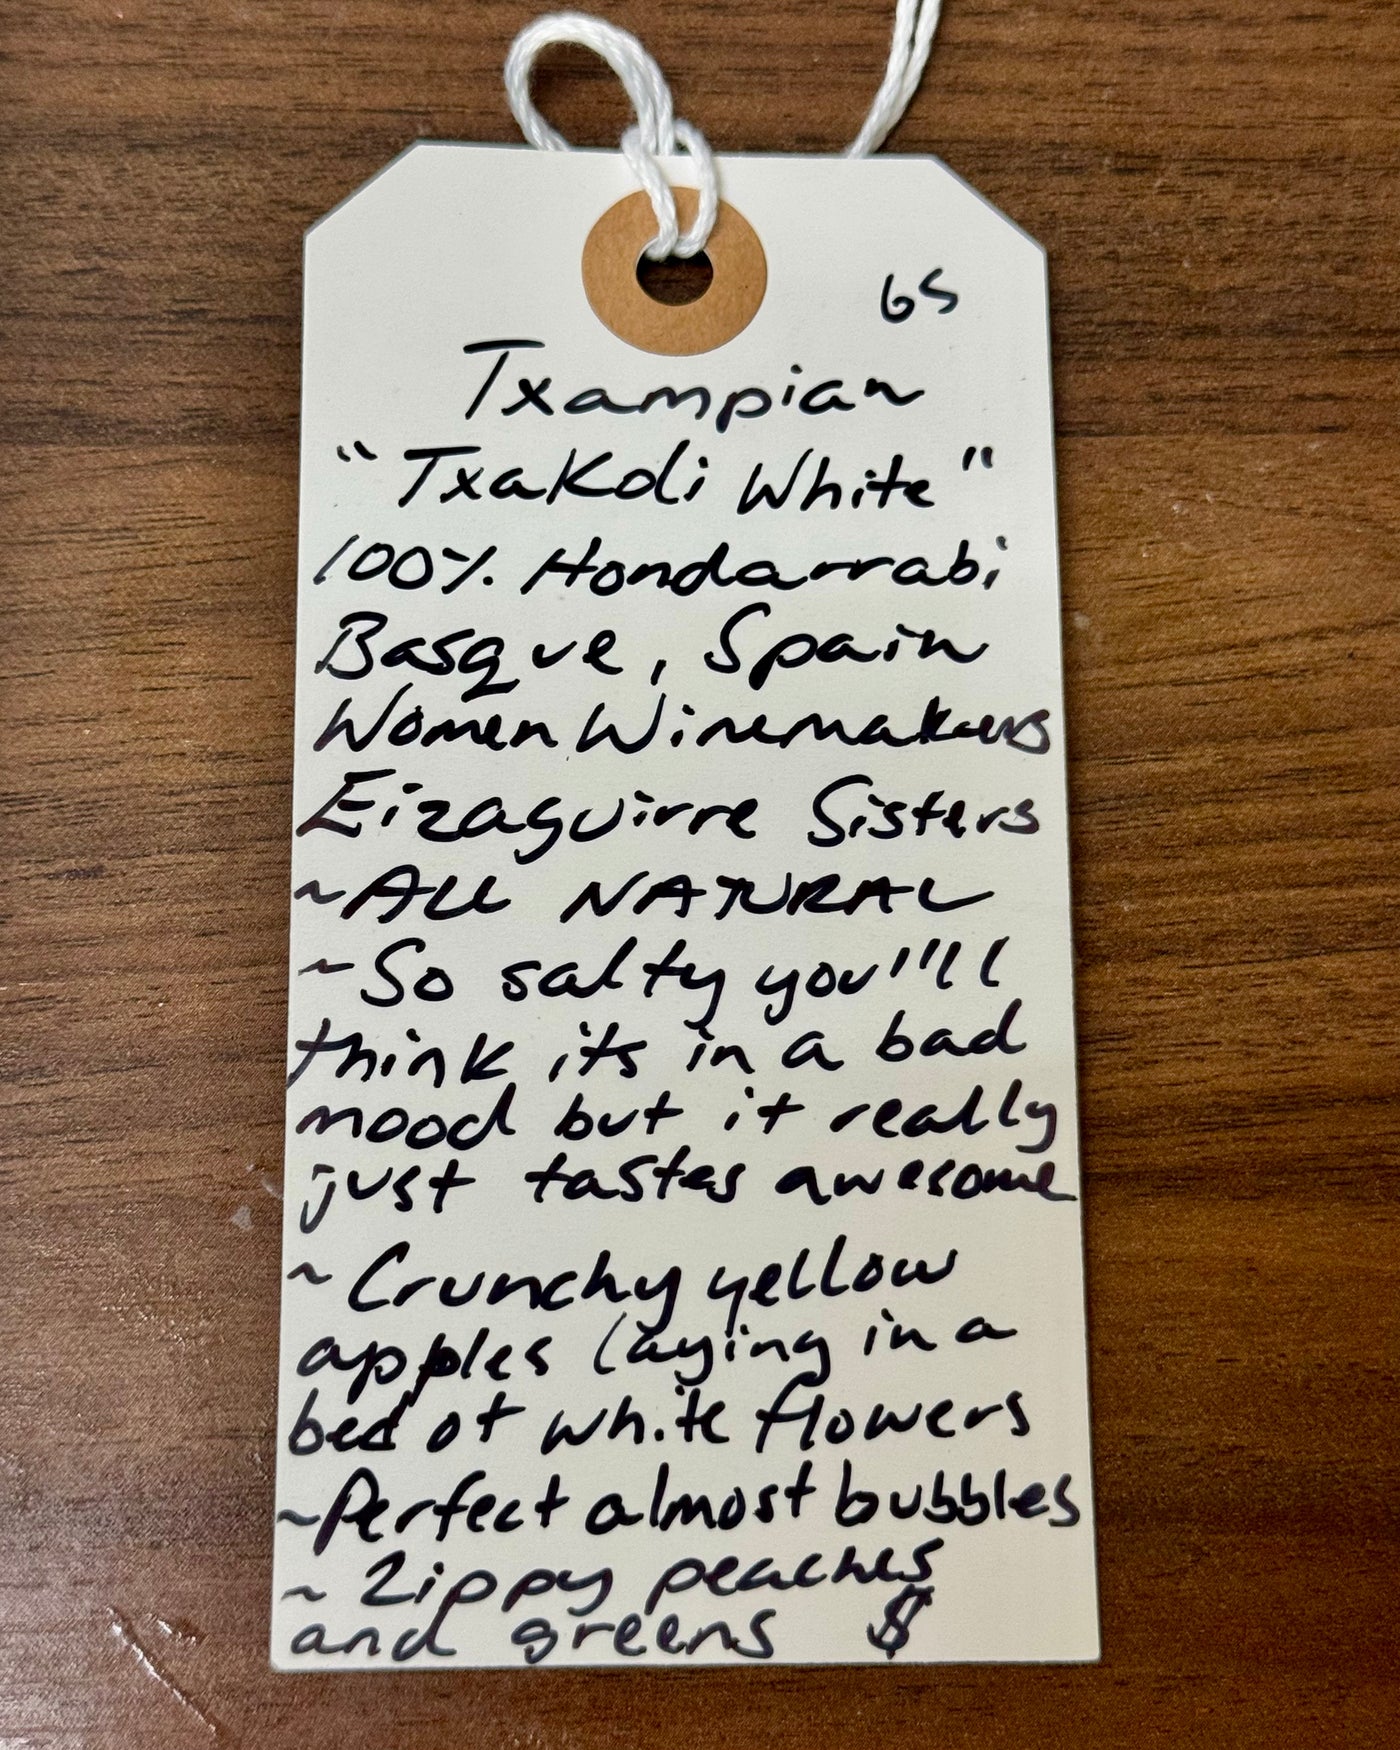 65
Txampian
"Txakoli White"
100% Hondarrabi
Basque, Spain
Women Winemakers
Eizaguirre Sisters
~ALL NATURAL
~So salty you'''ll
think its in a bad
mood but it really
just tastes awesome
~Crunchy yellow
apples laying in a
bed of white flowers
~Perfect almost bubbles
~Zippy peaches
and greens $